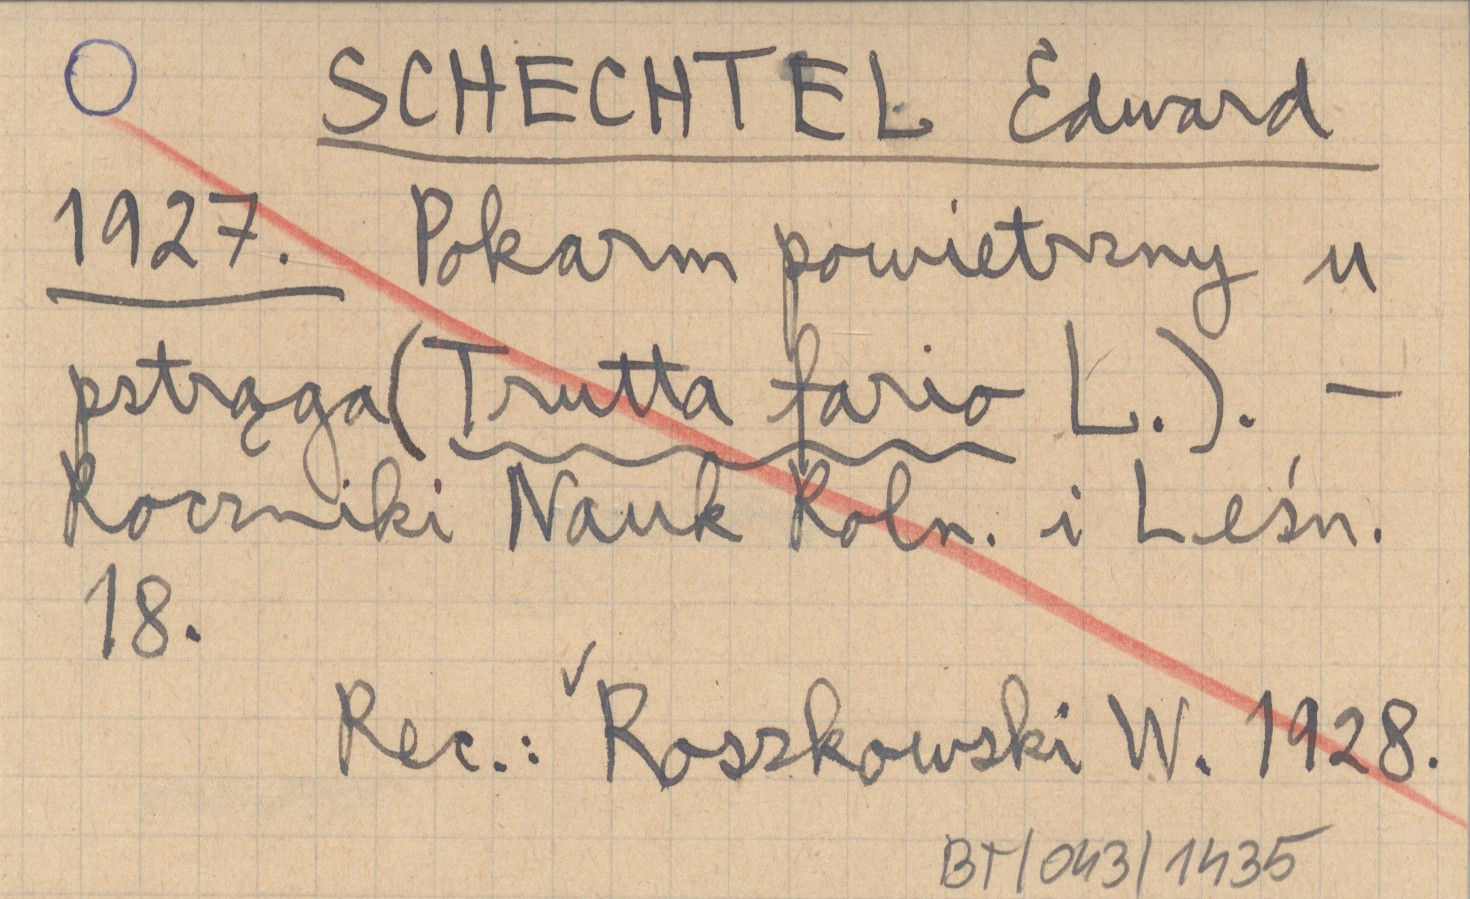 SCHECHTEL Edward
1927. Pokarm powietrzny u
pstrąga (Trutta fario L.). —
Roczniki Nauk Roln. i Leśn.
18.
Rec.: ✓Roszkowski W. 1928.
BT/043/1435